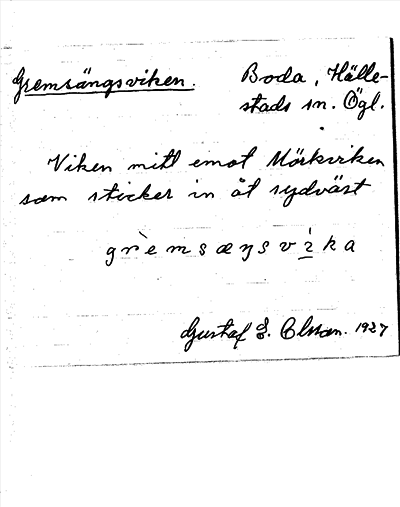 Gremsängsviken. Boda, Hälle-
stads sn. Ögl.
Viken mitt emot Mörkviken
som sticker in åt sydväst
grèmsæŋsvi̠ka
Gustaf E. Olsson. 1927